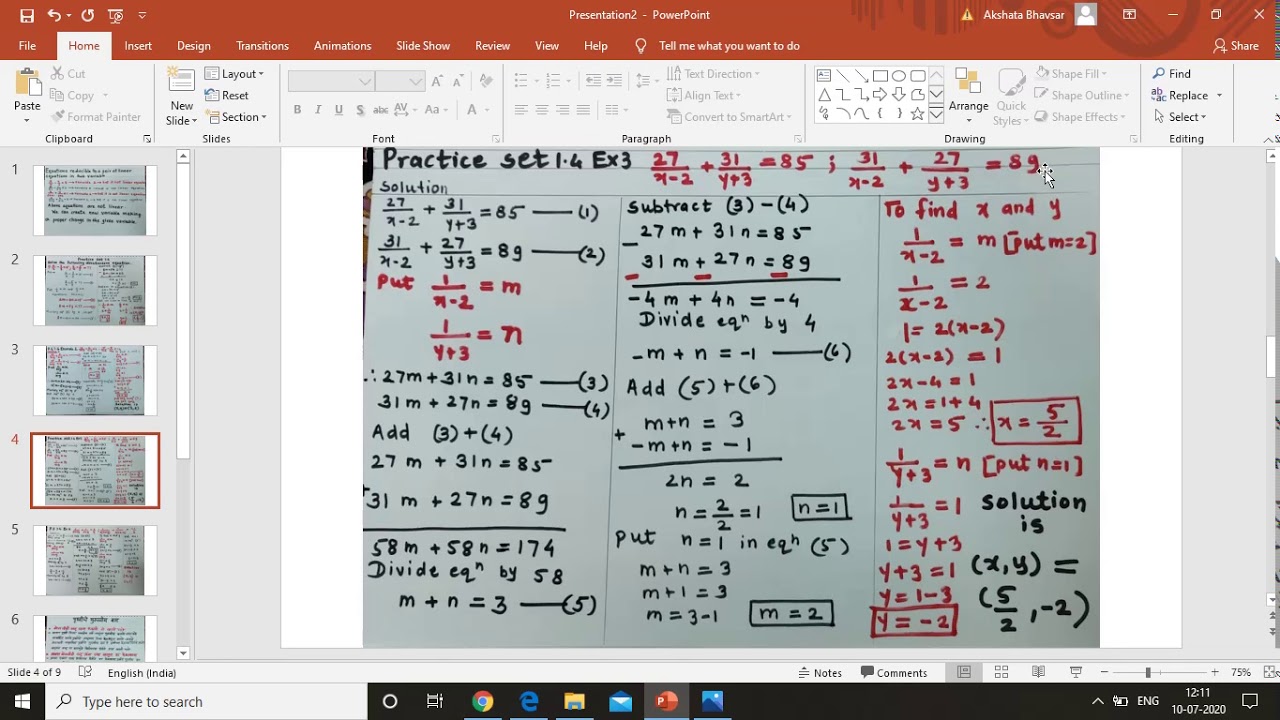 Presentation2 - PowerPoint
Akshata Bhavsar
File Home Insert Design Transitions Animations Slide Show Review View Help Tell me what you want to do Share
Paste
Cut
Copy
Format Painter
Clipboard
New Slide
Layout
Reset
Section
Slides
B I U S abc AV Aa A
Font
Text Direction
Align Text
Convert to SmartArt
Paragraph
Arrange
Quick Styles
Shape Fill
Shape Outline
Shape Effects
Drawing
Find
Replace
Select
Editing
1
2
3
4
5
6
Practice set 1.4 Ex3 27/x-2 + 31/y+3 = 85 ; 31/x-2 + 27/y+3 = 89
Solution
27/x-2 + 31/y+3 = 85 —— (1)
31/x-2 + 27/y+3 = 89 —— (2)
Put 1/x-2 = m
1/y+3 = n
∴ 27m+31n = 85 —— (3)
31m + 27n = 89 —— (4)
Add (3)+(4)
27 m + 31n = 85
+31 m + 27n = 89
58m + 58n = 174
Divide eqⁿ by 58
m + n = 3 —— (5)
Subtract (3)-(4)
27m + 31n = 85
- 31m + 27n = 89
- - -
-4m + 4n = -4
Divide eqⁿ by 4
-m + n = -1 —— (6)
Add (5)+(6)
m+n = 3
+ -m+n = -1
2n = 2
n = 2/2 = 1 n=1
put n=1 in eqⁿ (5)
m+n = 3
m+1 = 3
m = 3-1 m = 2
To find x and y
1/x-2 = m [put m=2]
1/x-2 = 2
1 = 2(x-2)
2(x-2) = 1
2x-4 = 1
2x = 1+4
2x = 5 ∴ x = 5/2
1/y+3 = n [put n=1]
1/y+3 = 1
1 = y+3
y+3 = 1
y = 1-3
y = -2
solution
is
(x,y) =
(5/2, -2)
Slide 4 of 9 English (India) Notes Comments 75%
Type here to search
ENG
12:11
10-07-2020